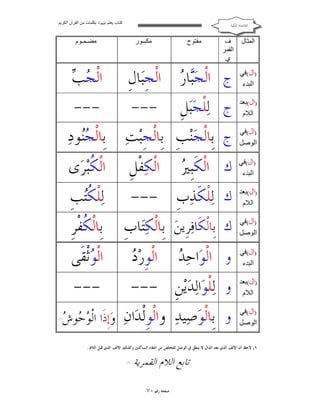 كتاب يعلم بثبوت بكلمات من القرآن الكريم
القاعدة المكية
المثال ف القمر ي مفتوح مكسور مضموم
(ال) في البدء ج الْجَبَّارُ الْجِبَالِ الْجُبِّ
(ال) بعد اللام ج لِلْجَبَلِ --- ---
(ال) في الوصل ج بِالْجَنْبِ بِالْجِبْتِ بِالْجُنُودِ
(ال) في البدء ك الْكَبِيرُ الْكِفْلِ الْكُبْرَى
(ال) بعد اللام ك لِلْكَذِبِ --- لِلْكُتُبِ
(ال) في الوصل ك بِالْكَافِرِينَ بِالْكِتَابِ بِالْكُفْرِ
(ال) في البدء و الْوَاحِدُ الْوِرْدُ الْوُثْقَى
(ال) بعد اللام و لِلْوَالِدَيْنِ --- ---
(ال) في الوصل و بِالْوَصِيدِ والْوِلْدَانِ وَإِذَا الْوُحُوشُ
لاحظ أن الألف الذي بعد الذال لا ينطق في الوصل للتخلص من التقاء الساكنين وكذلك الألف الذي قبل اللام .
تابع اللام القمرية
صفحة رقم ٧٠